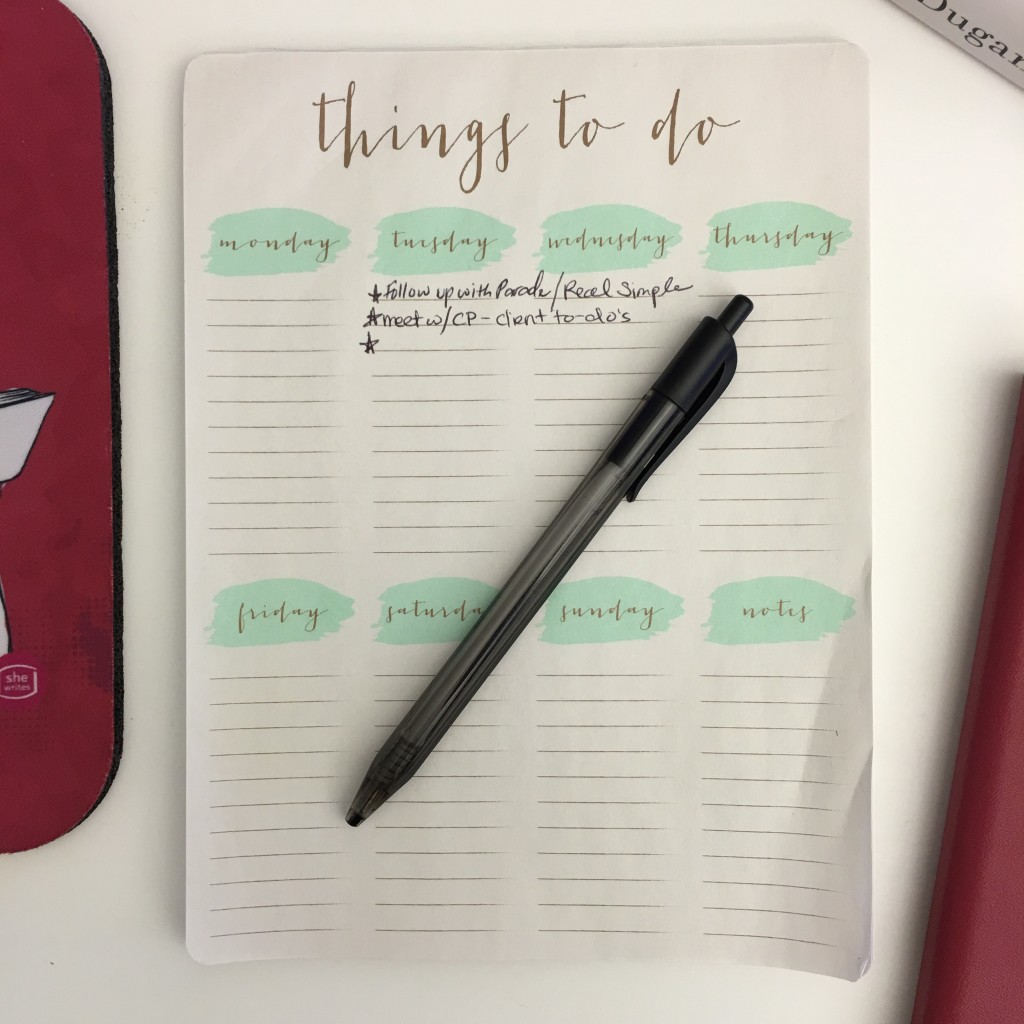 Dugan
things to do
monday tuesday wednesday thursday
★Follow up with Parade/Real Simple
★meet w/CP - client to-do's
★
friday saturda sunday notes
she
writes